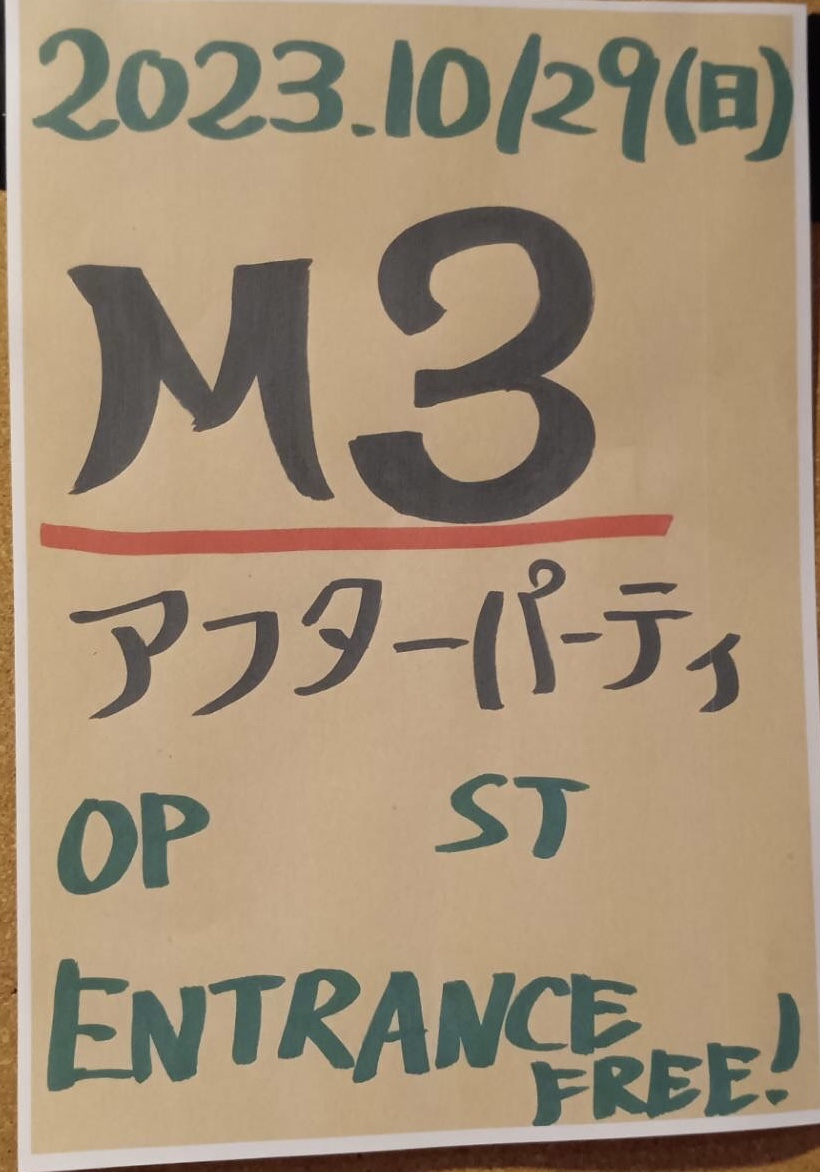 2023.10/29(日)
M3
アフターパーティ
OP ST
ENTRANCE
FREE!